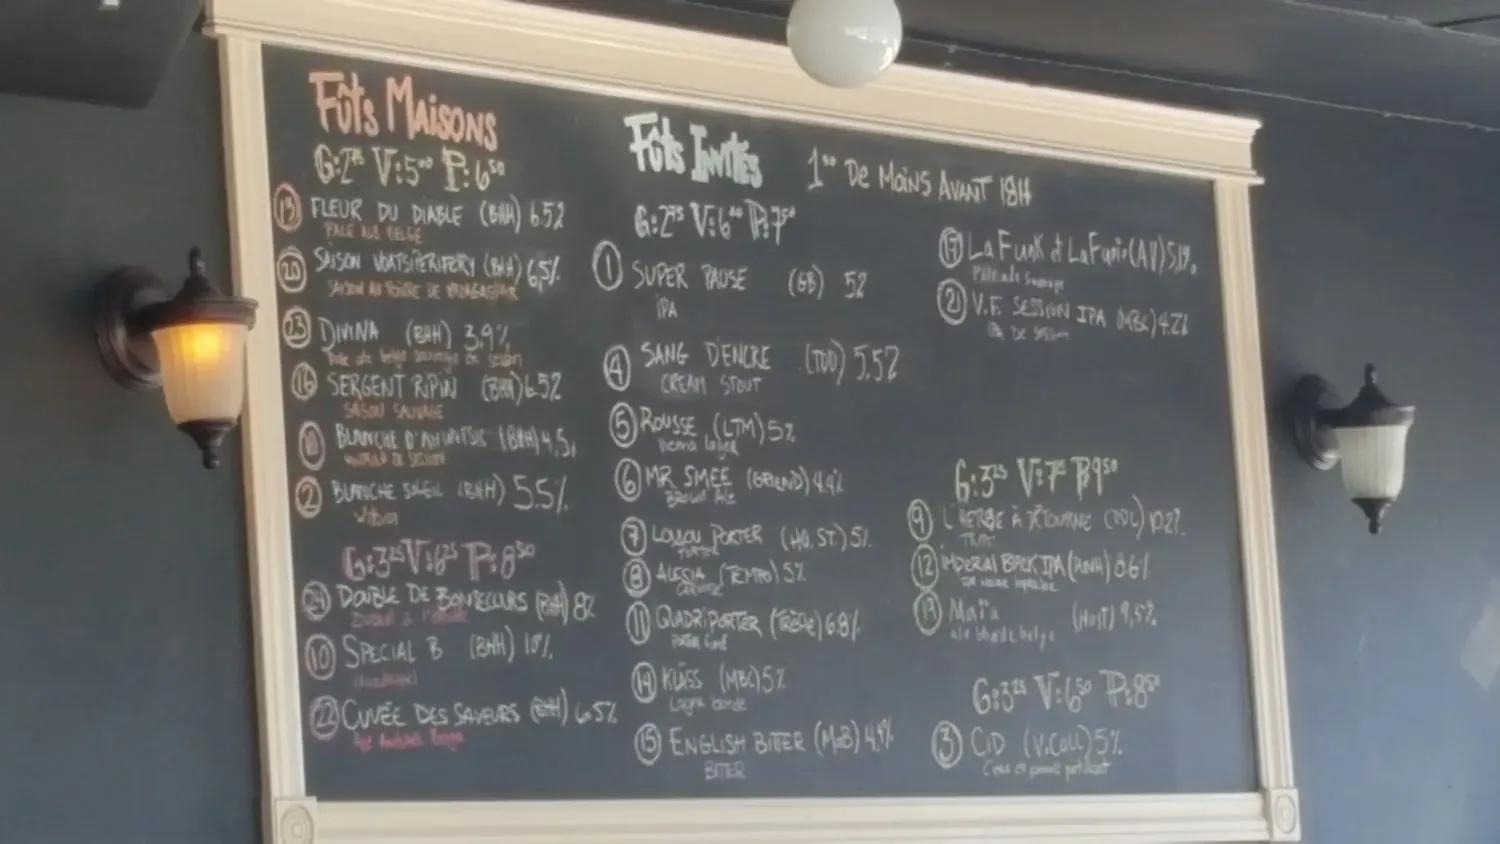 Fûts Maisons
G:2⁷⁵ V:5⁰⁰ P:6⁵⁰
13 FLEUR DU DIABLE (BHH) 6.5%
PALE ALE BELGE
20 SAISON (BHH) 6,5%
SAISON AU POIVRE DE MADAGASCAR
23 DIVINA (BHH) 3.9%
belge sauvage de session
16 SERGENT RIPIN (BHH) 6.5%
SAISON SAUVAGE
BLANCHE D'AHUNTSIC (BHH) 4,5
DE SESSION
2 BLANCHE SOLEIL (BHH) 5.5%
G:3²⁵ V:6²⁵ P:8⁵⁰
24 DOUBLE DE BONSECOURS (BHH) 8%
10 SPECIAL B (BHH) 10%
22 CUVÉE DES SAVEURS (BHH) 6.5%
Fûts Invités
1⁰⁰ De Moins Avant 18H
G:2⁷⁵ V:6⁰⁰ P:7⁵⁰
1 SUPER PAUSE (GB) 5%
IPA
4 SANG D'ENCRE (TDD) 5.5%
CREAM STOUT
5 ROUSSE (LTM) 5%
Vienna lager
6 MR SMEE (GRIEND) 4.9%
BROWN ALE
7 LOULOU PORTER (HO. ST.) 5%
PORTER
8 ALESIA (TEMPO) 5%
11 QUADRIPORTER (TRÈFLE) 6.8%
14 KLÄSS (MBC) 5%
Lager blonde
15 ENGLISH BITER (MaB) 4,9%
BITER
17 La Funk et La Furie (AV) 5,1%
Pale ale Sauvage
21 V.F. SESSION IPA (MBC) 4.2%
IPA DE SESSION
G:3²⁵ V:7⁷⁵ P:9⁵⁰
9 L'HERBE À DÉTOURNE (TDD) 10.2%
12 IMPERIAL BLACK IPA (BHH) 8.6%
19 (HoST) 9,5%
ale blonde belge
G:3²⁵ V:6⁵⁰ P:8⁵⁰
3 CID (V.COLL) 5%